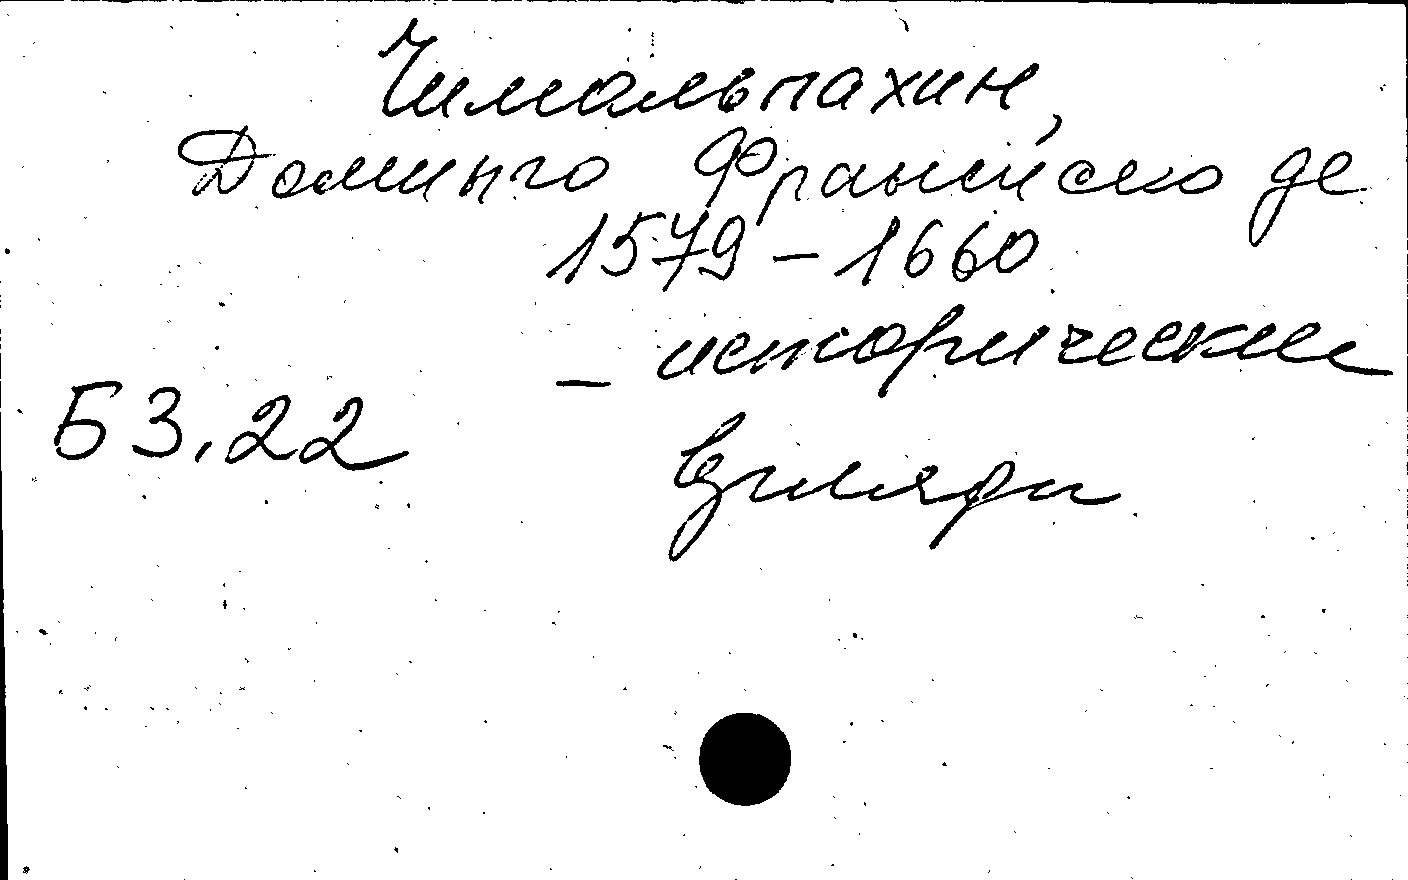 Чимальпахин,
Доминго Франсиско де
1579 – 1660
– исторические
Б3.22
взгляды